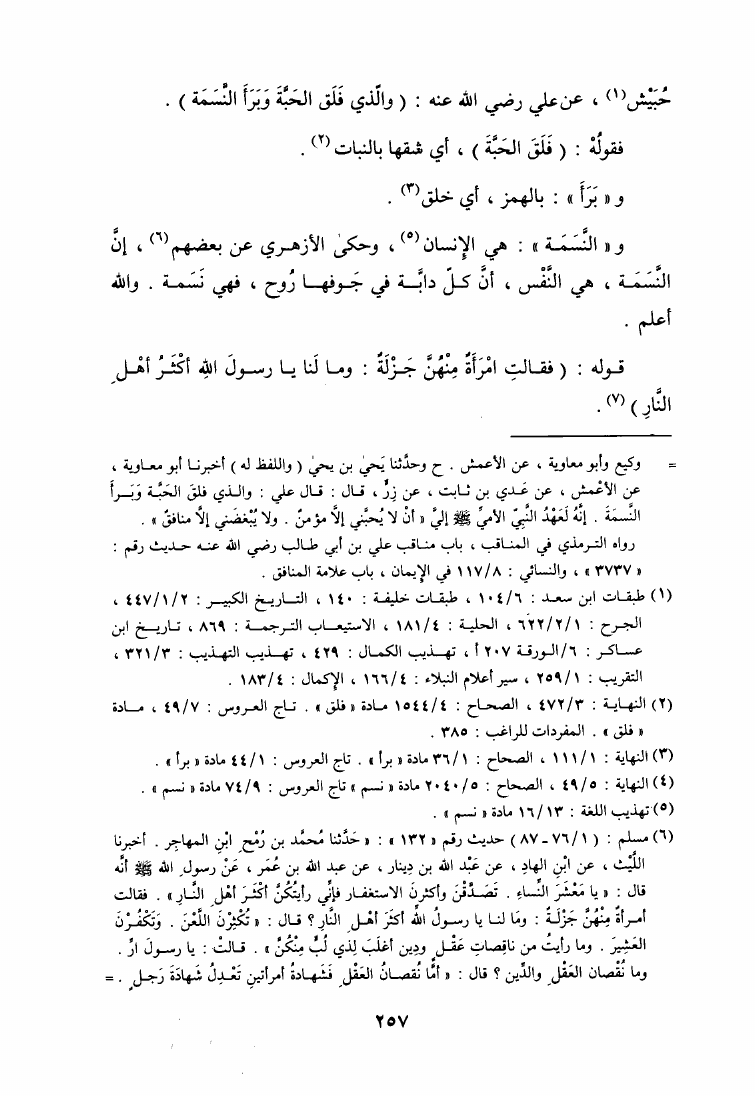 حُبَيْش(١) ، عن علي رضي الله عنه : ( والَّذي فَلَق الحَبَّةَ وَبَرَأَ النَّسَمَة ) .
فقولُهُ : ( فَلَقَ الحَبَّةَ ) ، أي شقها بالنبات(٢) .
و « بَرَأَ » : بالهمز ، أي خلق(٣) .
و « النَّسَمَـة » : هي الإنسان(٥) ، وحكىٰ الأزهـري عن بعضهم(٦) ، إنَّ
النَّسَمَـة ، هي النَّفْس ، أنَّ كـلّ دابَّـة في جَـوفهـا رُوح ، فهي نَسَمـة . والله
أعلم .
قـوله : ( فقـالتِ امْرَأَةٌ مِنْهُنَّ جَـزْلَةٌ : ومـا لَنا يـا رسـولَ اللهِ أكْثَـرُ أهْـلِ
النَّارِ )(٧) .
= وكيع وأبو معاوية ، عن الأعمش . ح وحدَّثنا يَحيىٰ بن يحيىٰ ( واللفظ له ) أخبرنـا أبو معـاوية ،
عن الأعْمش ، عن عَـدي بن ثـابت ، عن زِرٍّ ، قـال : قـال علي : والـذي فلقَ الحَبَّـة وَبَـرأ
النَّسمَةَ . إنَّهُ لَعَهْدُ النَّبيّ الأميِّ ﷺ إليَّ « أنْ لا يُحبَّني إلَّا مؤمنٌ . ولا يُبْغضَني إلَّا منافقٌ » .
رواه التـرمذي في المنـاقب ، باب منـاقب علي بن أبي طـالب رضي الله عنـه حـديث رقم :
« ٣٧٣٧ » ، والنسائي : ١١٧/٨ في الإيمان ، باب علامة المنافق .
(١) طبقـات ابن سعـد : ١٠٤/٦ ، طبقـات خليفـة : ١٤٠ ، التـاريـخ الكبيـر : ٤٤٧/١/٢ ،
الجـرح : ٦٢٢/٢/١ ، الحليـة : ١٨١/٤ ، الاستيعـاب التـرجمـة : ٨٦٩ ، تـاريـخ ابن
عسـاكـر : ٦/الـورقـة ٢٠٧ أ ، تهـذيب الكمـال : ٤٢٩ ، تهـذيب التهـذيب : ٣٢١/٣ ،
التقريب : ٢٥٩/١ ، سير أعلام النبلاء : ١٦٦/٤ ، الإكمال : ١٨٣/٤ .
(٢) النهايـة : ٤٧٢/٣ ، الصحـاح : ١٥٤٤/٤ مـادة « فلق » . تـاج العـروس : ٤٩/٧ ، مـادة
« فلق » . المفردات للراغب : ٣٨٥ .
(٣) النهاية : ١١١/١ ، الصحاح : ٣٦/١ مادة « برأ » . تاج العروس : ٤٤/١ مادة « برأ » .
(٤) النهاية : ٤٩/٥ ، الصحاح : ٢٠٤٠/٥ مادة « نسم » تاج العروس : ٧٤/٩ مادة « نسم » .
(٥) تهذيب اللغة : ١٦/١٣ مادة « نسم » .
(٦) مسلم : ( ٧٦/١ ـ ٨٧ ) حديث رقم « ١٣٢ » : « حَدَّثنا مُحمَّد بن رُمْح ابْنِ المهاجِر . أخبرنا
اللَّيْث ، عن ابْنِ الهادِ ، عن عَبْد الله بن دينار ، عن عبد الله بن عُمَر ، عَنْ رسولِ الله ﷺ أنَّه
قال : « يا مَعْشَرَ النِّساءِ . تَصَدَّقْنَ وأكثرنَ الاستغفار فإنِّي رأيتكُنَّ أكثَـرَ أهْلِ النَّـارِ » . فقالت
أمـرأةٌ منْهُنَّ جَزْلَـةٌ : ومَا لنـا يا رسولُ اللهِّ أكثَرَ أهْـلِ النَّارِ ؟ قال : « تُكْثِرْنَ اللَّعْنَ . وَتَكْفُـرْنَ
العَشِيرَ . وما رأيتُ من ناقِصاتِ عَقْـلٍ ودِينٍ أغلَبَ لِذي لُبٍّ مِنْكُنَّ » . قـالتْ : يا رسولَ ارّ .
وما نُقْصان العَقْلِ والدِّين ؟ قال : « أمَّا نُقصـانُ العَقْلِ فَشَهـادةُ أمرأتينِ تَعْـدِلُ شَهادَةَ رَجـلٍ . =
٢٥٧